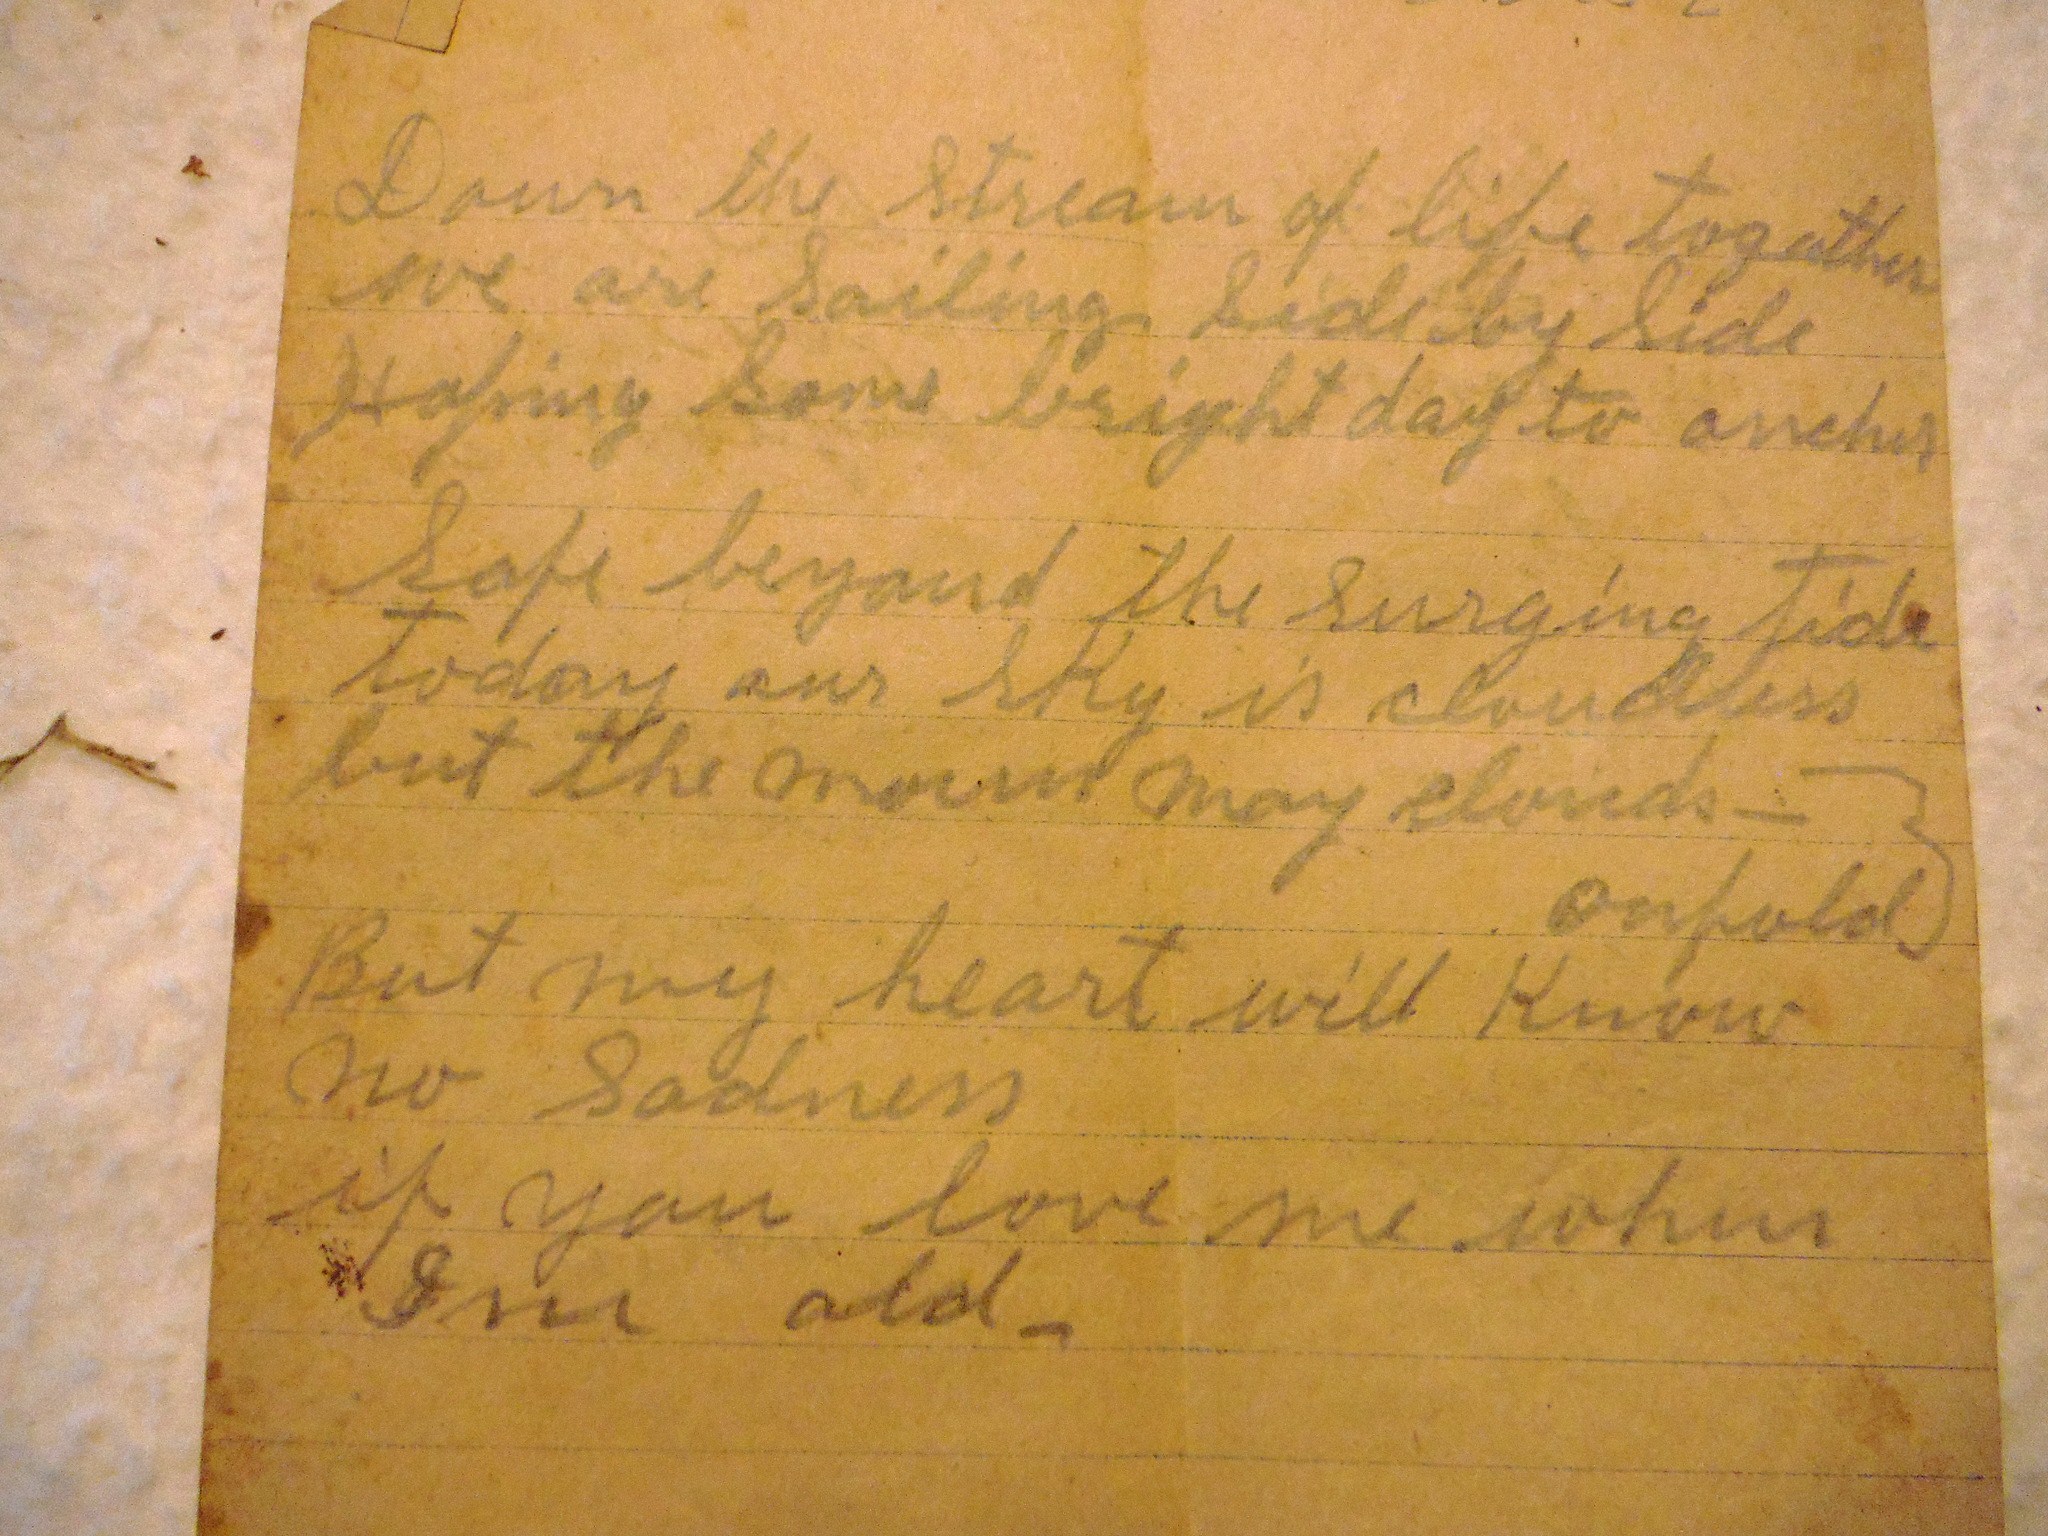 Down the Stream of life togather
we are Sailing Side by Side
Hoping Some bright day to anchor
Safe beyond the surging tide
today our sky is cloudless
but the mourn may clouds —
onfold
But my heart will Know
no Sadness
if you love me when
I'm old -